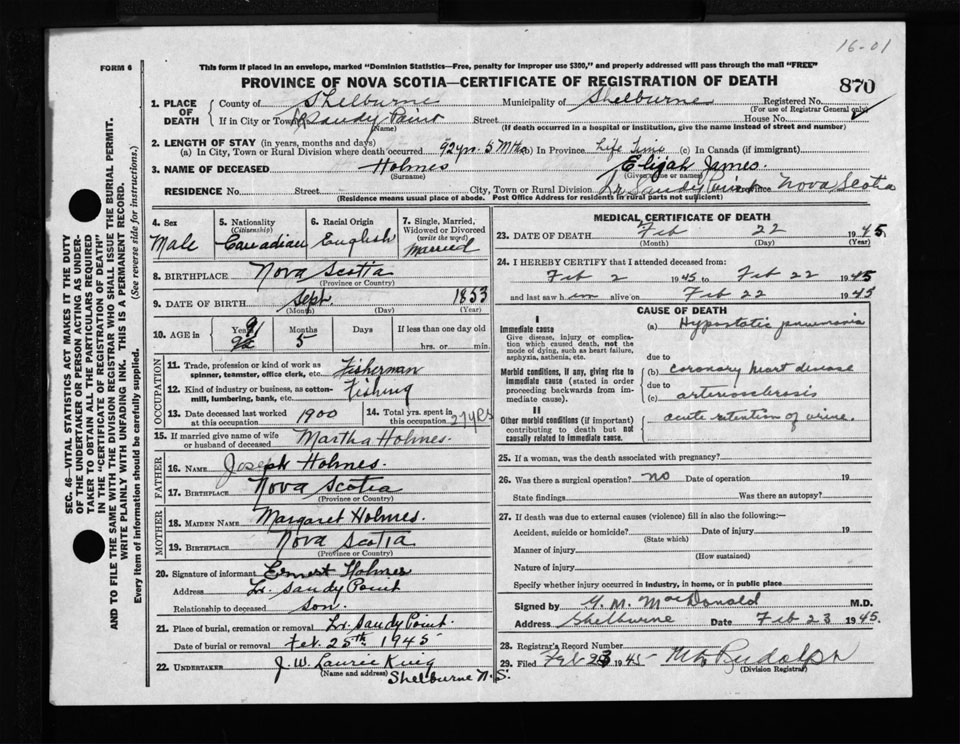 16-01
FORM 6
This form if placed in an envelope, marked "Dominion Statistics—Free, penalty for improper use $300," and properly addressed will pass through the mail "FREE"
PROVINCE OF NOVA SCOTIA—CERTIFICATE OF REGISTRATION OF DEATH
870
1. PLACE OF DEATH
County of Shelburne Municipality of Shelburne Registered No.
(For use of Registrar General only)
If in City or Town Lr Sandy Point Street House No.
(Name) (If death occurred in a hospital or institution, give the name instead of street and number)
2. LENGTH OF STAY (in years, months and days)
(a) In City, Town or Rural Division where death occurred 92 yrs. 5 Mths (b) In Province Life Time (c) In Canada (if immigrant)
3. NAME OF DECEASED Holmes Elijah James.
(Surname) (Given name or names)
RESIDENCE No. Street City, Town or Rural Division Lr Sandy Point Province Nova Scotia
(Residence means usual place of abode. Post Office Address for residents in rural parts not sufficient)
4. Sex Male
5. Nationality (Citizenship) Canadian
6. Racial Origin English
7. Single, Married, Widowed or Divorced (write the word) Married
8. BIRTHPLACE Nova Scotia
(Province or Country)
9. DATE OF BIRTH Sept. 1853
(Month) (Day) (Year)
10. AGE in Years Months 5 Days If less than one day old
hrs. or min.
OCCUPATION
11. Trade, profession or kind of work as spinner, teamster, office clerk, etc. Fisherman
12. Kind of industry or business, as cotton-mill, lumbering, bank, etc. Fishing
13. Date deceased last worked at this occupation 1900
14. Total yrs. spent in this occupation 27 yrs
15. If married give name of wife or husband of deceased Martha Holmes.
FATHER
16. NAME Joseph Holmes.
17. BIRTHPLACE Nova Scotia
(Province or Country)
MOTHER
18. MAIDEN NAME Margaret Holmes.
19. BIRTHPLACE Nova Scotia
(Province or Country)
20. Signature of informant Ernest Holmes
Address Lr. Sandy Point
Relationship to deceased Son.
21. Place of burial, cremation or removal Lr Sandy Point.
Date of burial or removal Feb. 25th 1945
22. UNDERTAKER J. W. Laurie King
(Name and address) Shelburne N. S.
MEDICAL CERTIFICATE OF DEATH
23. DATE OF DEATH Feb 22 1945
(Month) (Day) (Year)
24. I HEREBY CERTIFY that I attended deceased from:
Feb 2 1945, to Feb 22 1945
and last saw him alive on Feb 22 1945
CAUSE OF DEATH
I
Immediate cause
Give disease, injury or complication which caused death, not the mode of dying, such as heart failure, asphyxia, asthenia, etc.
(a) Hypostatic pneumonia
due to
Morbid conditions, if any, giving rise to immediate cause (stated in order proceeding backwards from immediate cause).
(b) coronary heart disease
due to
(c) arteriosclerosis
II
Other morbid conditions (if important) contributing to death but not causally related to immediate cause.
acute retention of urine.
25. If a woman, was the death associated with pregnancy?
26. Was there a surgical operation? no Date of operation 19
State findings Was there an autopsy?
27. If death was due to external causes (violence) fill in also the following:—
Accident, suicide or homicide? Date of injury 19
(State which)
Manner of injury
(How sustained)
Nature of injury
Specify whether injury occurred in industry, in home, or in public place
Signed by MacDonald M.D.
Address Shelburne Date Feb 23 1945.
28. Registrar's Record Number
29. Filed Feb 23 1945 Rudolph
(Division Registrar)
SEC. 46—VITAL STATISTICS ACT MAKES IT THE DUTY
OF THE UNDERTAKER OR PERSON ACTING AS UNDER-
TAKER TO OBTAIN ALL THE PARTICULARS REQUIRED
IN THE "CERTIFICATE OF REGISTRATION OF DEATH"
AND TO FILE THE SAME WITH THE DIVISION REGISTRAR WHO SHALL ISSUE THE BURIAL PERMIT.
WRITE PLAINLY WITH UNFADING INK. THIS IS A PERMANENT RECORD.
Every item of information should be carefully supplied. (See reverse side for instructions.)